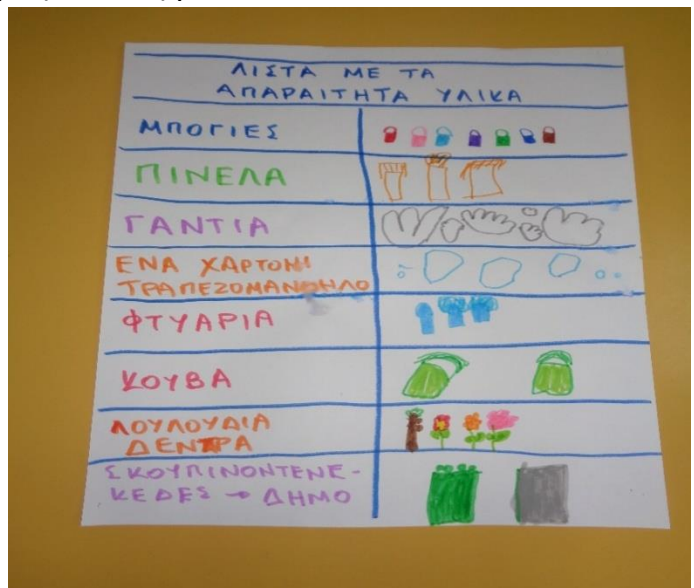 ΛΙΣΤΑ ΜΕ ΤΑ
ΑΠΑΡΑΙΤΗΤΑ ΥΛΙΚΑ
ΜΠΟΓΙΕΣ
ΠΙΝΕΛΑ
ΓΑΝΤΙΑ
ΕΝΑ ΧΑΡΤΟΝΙ
ΤΡΑΠΕΖΟΜΑΝΘΗΛΟ
ΦΤΥΑΡΙΑ
ΚΟΥΒΑ
ΛΟΥΛΟΥΔΙΑ
ΔΕΝΤΡΑ
ΣΚΟΥΠΙΝΟΝΤΕΝΕ-
ΚΕΔΕΣ → ΔΗΜΟ